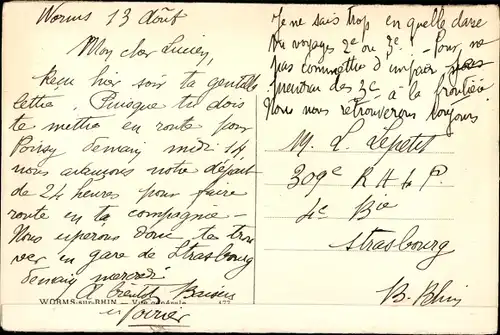 Worms 13 Août
Mon cher Lucien,
Reçu hier soir ta gentille
lettre. Puisque tu dois
te mettre en route pour
demain midi 14,
nous avançons notre départ
de 24 heures pour faire
route en ta compagnie -
Nous espérons donc te trou
ver en gare de Strasbourg
demain mercredi
A bientôt Baisers
WORMS-sur-RHIN — Vue générale
Je ne sais trop en quelle classe
tu voyages 2e ou 3e - Pour ne
pas commettre d'impair
prendrai des 3e à la frontière.
Nous nous retrouverons toujours.
M. L. Lepetit
309e R A L P.
4e Bie
Strasbourg
B-Rhin